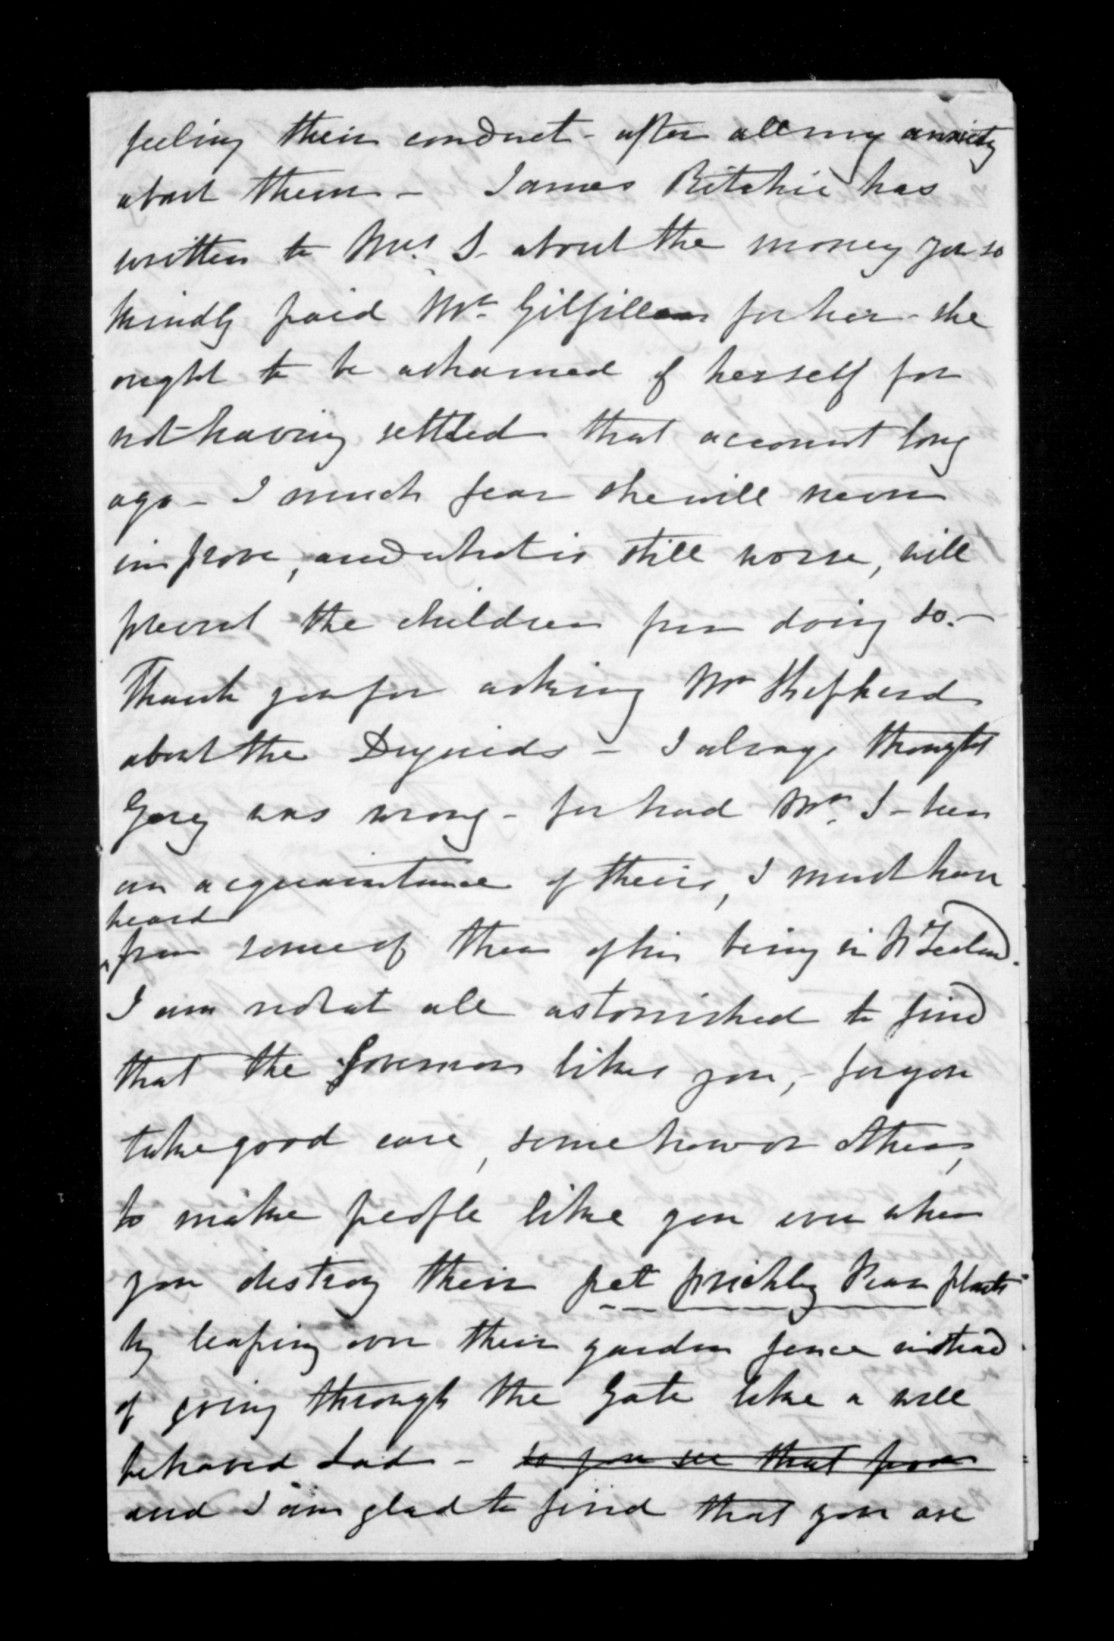 feeling their conduct - after all my anxiety
about them - James Ritchie has
written to Mrs. S. about the money you so
kindly paid Mr. Gilfillan for her - she
ought to be ashamed of herself for
not having settled that account long
ago - I much fear she will never
improve, and what is still worse, will
prevent the children from doing so. -
Thank you for asking Mr Shepherd
about the Duguids - I always thought
was wrong - for had Mr. S - been
an acquaintance of theirs, I must have
heard
from some of them of his being in N Zealand.
I am not at all astonished to find
that the Governor likes you, - for you
take good care, some how or other,
to make people like you even when
you destroy their pet prickly Pear plants
by leaping over their garden fence instead
of going through the Gate like a well
behaved Lad - so you see that poor
and I am glad to find that you are